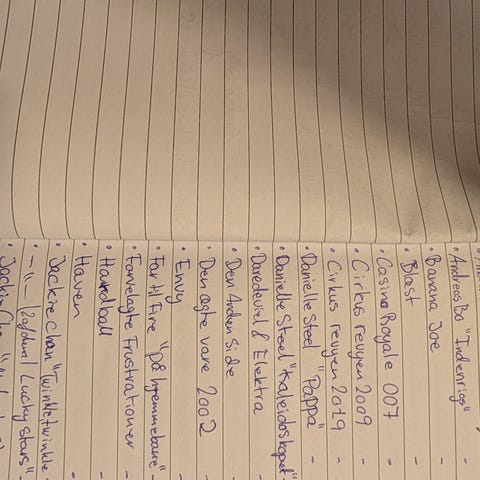 • Andreas Bo "Indenrigs"
• Banana Joe -
• Blast -
• Casino Royale 007 -
• Cirkus revyen 2009
• Cirkus revyen 2019 -
• Danielle Steel "Pappa" -
• Danielle Steel "Kaleidoskopet" -
• Daredevil & Elektra
• Den Anden Side
• Den ægte vare 2002
• Envy
• Far til Fire "på hjemmebane" -
• Frustrationer
• Hardball
• Haven
• Jackie Chan "Twinkle Twinkle
• -"- Lucky Stars" -
• Jackie